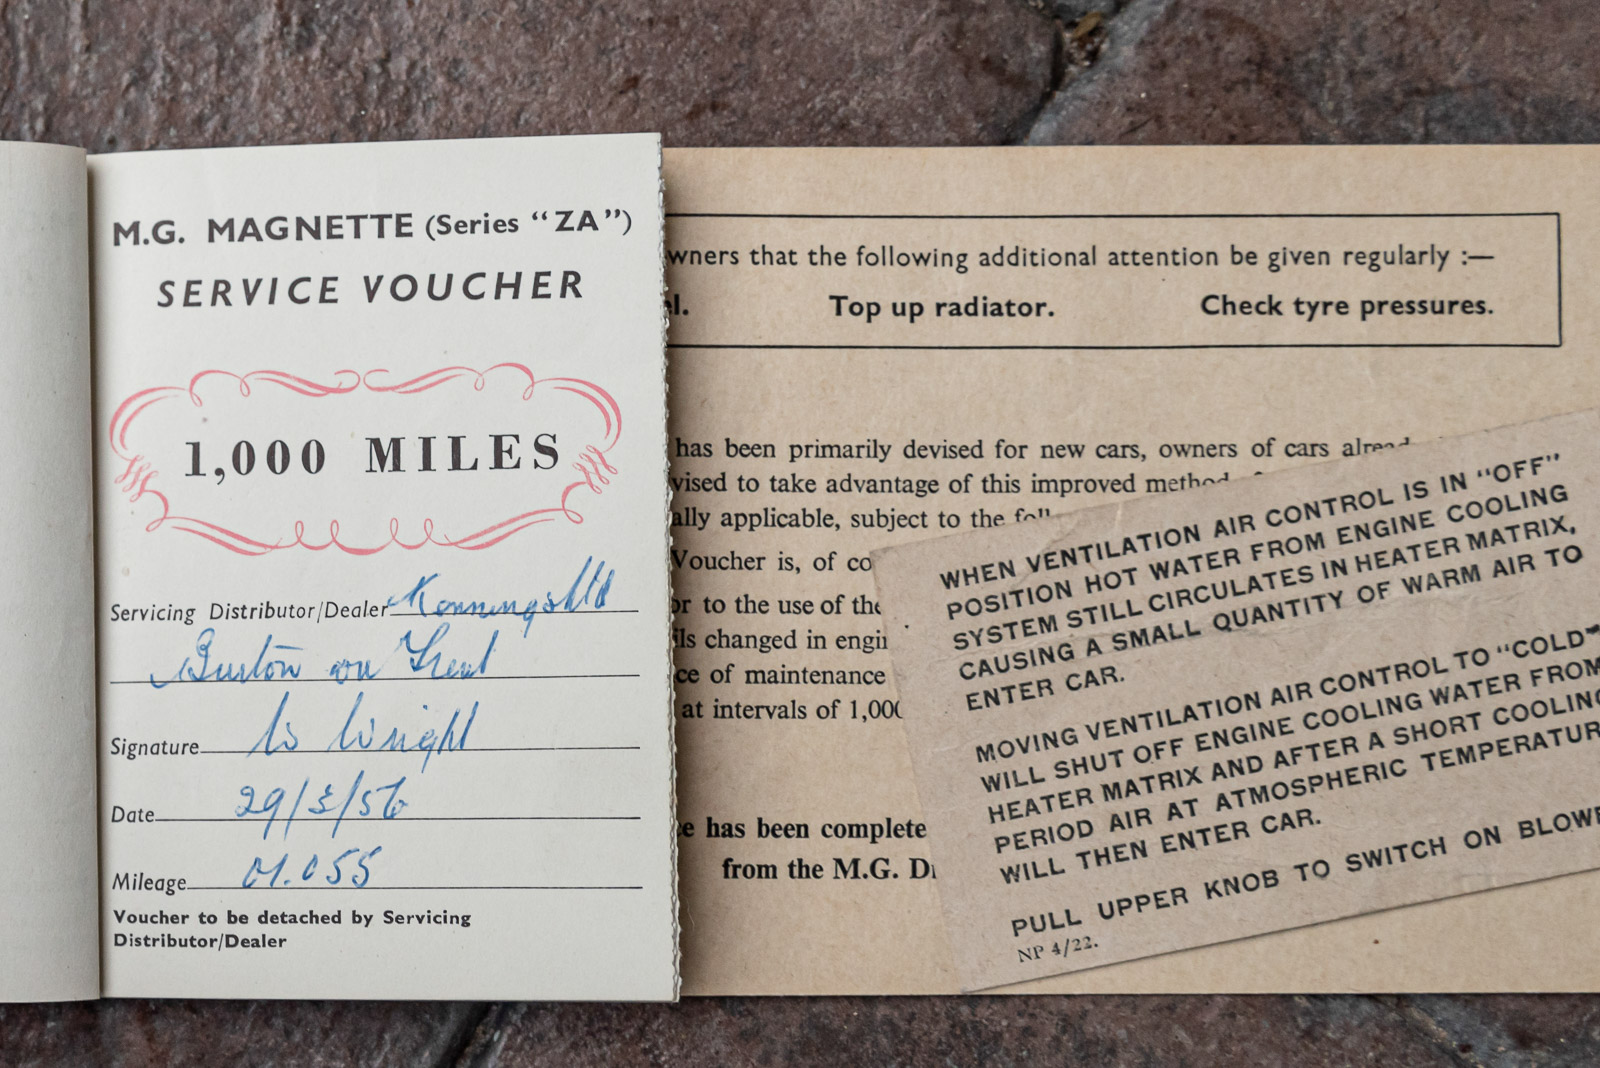 M.G. MAGNETTE (Series "ZA")
SERVICE VOUCHER
1,000 MILES
Servicing Distributor/Dealer
Burton on Trent
Signature W Wright
Date 29/3/56
Mileage 01.055
Voucher to be detached by Servicing
Distributor/Dealer
wners that the following additional attention be given regularly :—
l. Top up radiator. Check tyre pressures.
has been primarily devised for new cars, owners of cars alread
vised to take advantage of this improved method
ally applicable, subject to the foll
Voucher is, of co
or to the use of the
ils changed in engi
ce of maintenance
at intervals of 1,000
e has been complete
from the M.G. Di
WHEN VENTILATION AIR CONTROL IS IN "OFF"
POSITION HOT WATER FROM ENGINE COOLING
SYSTEM STILL CIRCULATES IN HEATER MATRIX,
CAUSING A SMALL QUANTITY OF WARM AIR TO
ENTER CAR.
MOVING VENTILATION AIR CONTROL TO "COLD"
WILL SHUT OFF ENGINE COOLING WATER FROM
HEATER MATRIX AND AFTER A SHORT COOLING
PERIOD AIR AT ATMOSPHERIC TEMPERATUR
WILL THEN ENTER CAR.
PULL UPPER KNOB TO SWITCH ON BLOWE
NP 4/22.